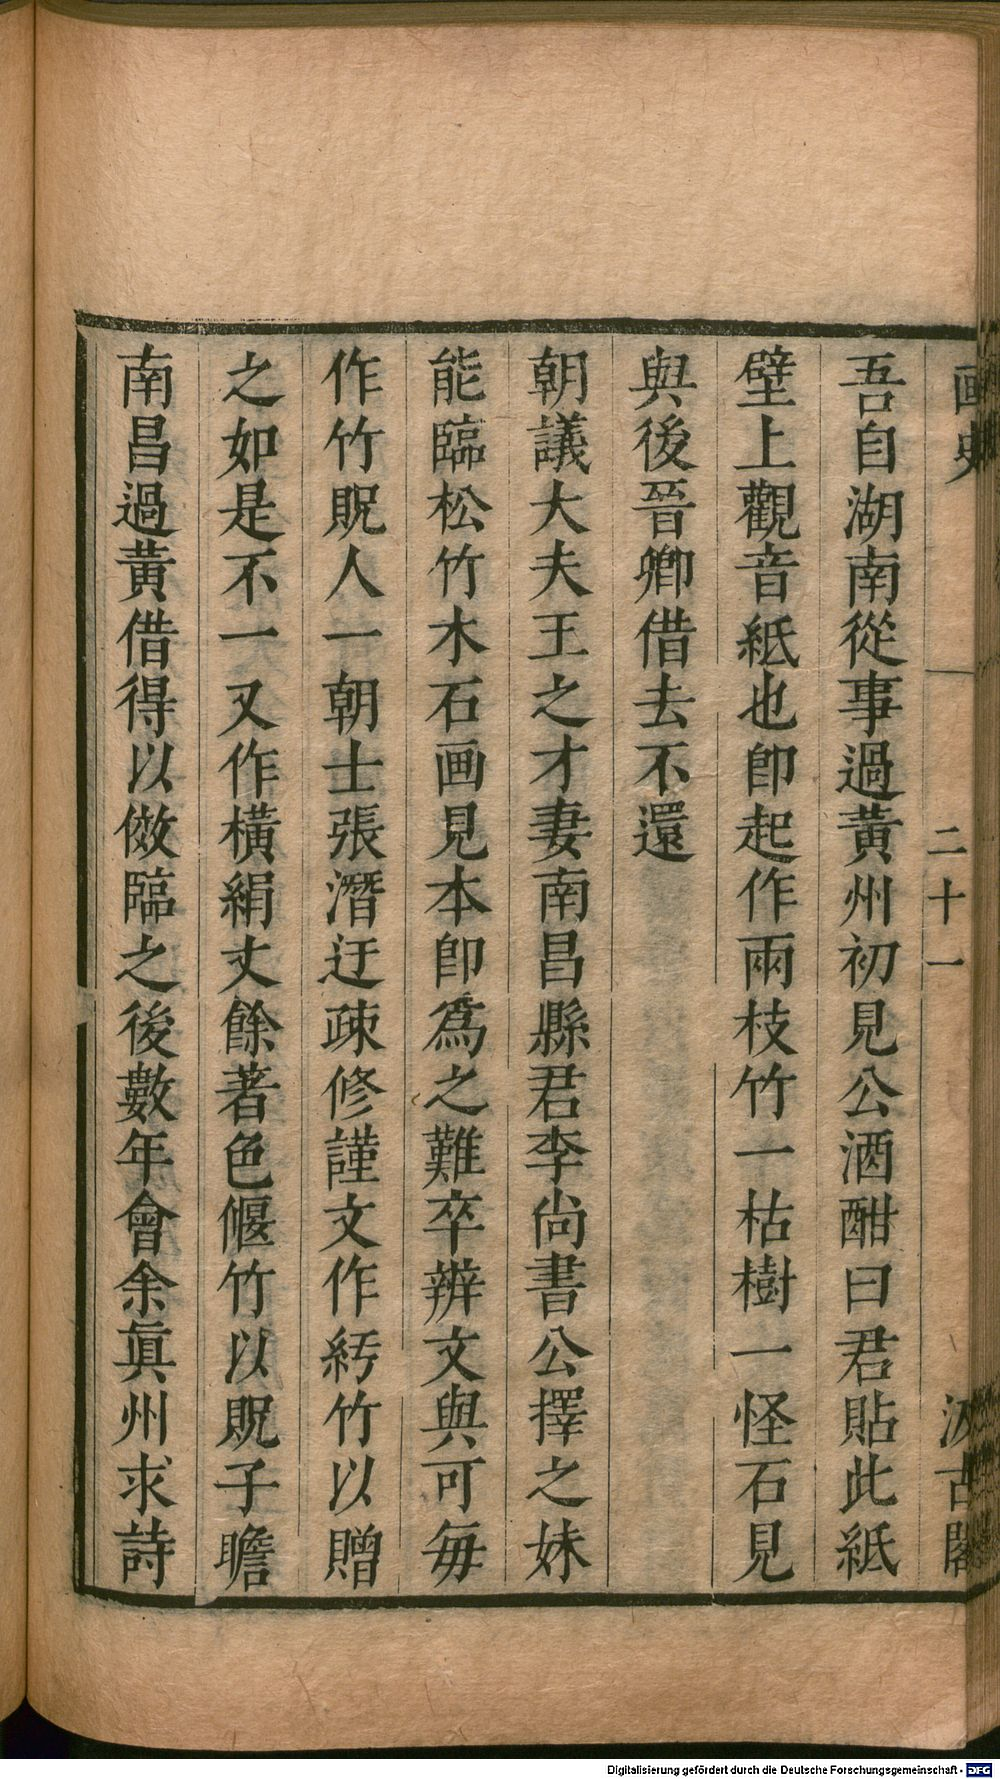 画史
二十一
汲古閣
吾自湖南從事過黄州初見公酒酣曰君貼此紙
壁上觀音紙也卽起作兩枝竹一枯樹一怪石見
與後晉卿借去不還
朝議大夫王之才妻南昌縣君李尚書公擇之妹
能臨松竹木石画見本卽爲之難卒辨文與可每
作竹貺人一朝士張潛迂疎修謹文作紆竹以贈
之如是不一又作橫絹丈餘著色偃竹以貺子瞻
南昌過黄借得以倣臨之後數年會余眞州求詩
Digitalisierung gefördert durch die Deutsche Forschungsgemeinschaft - DFG